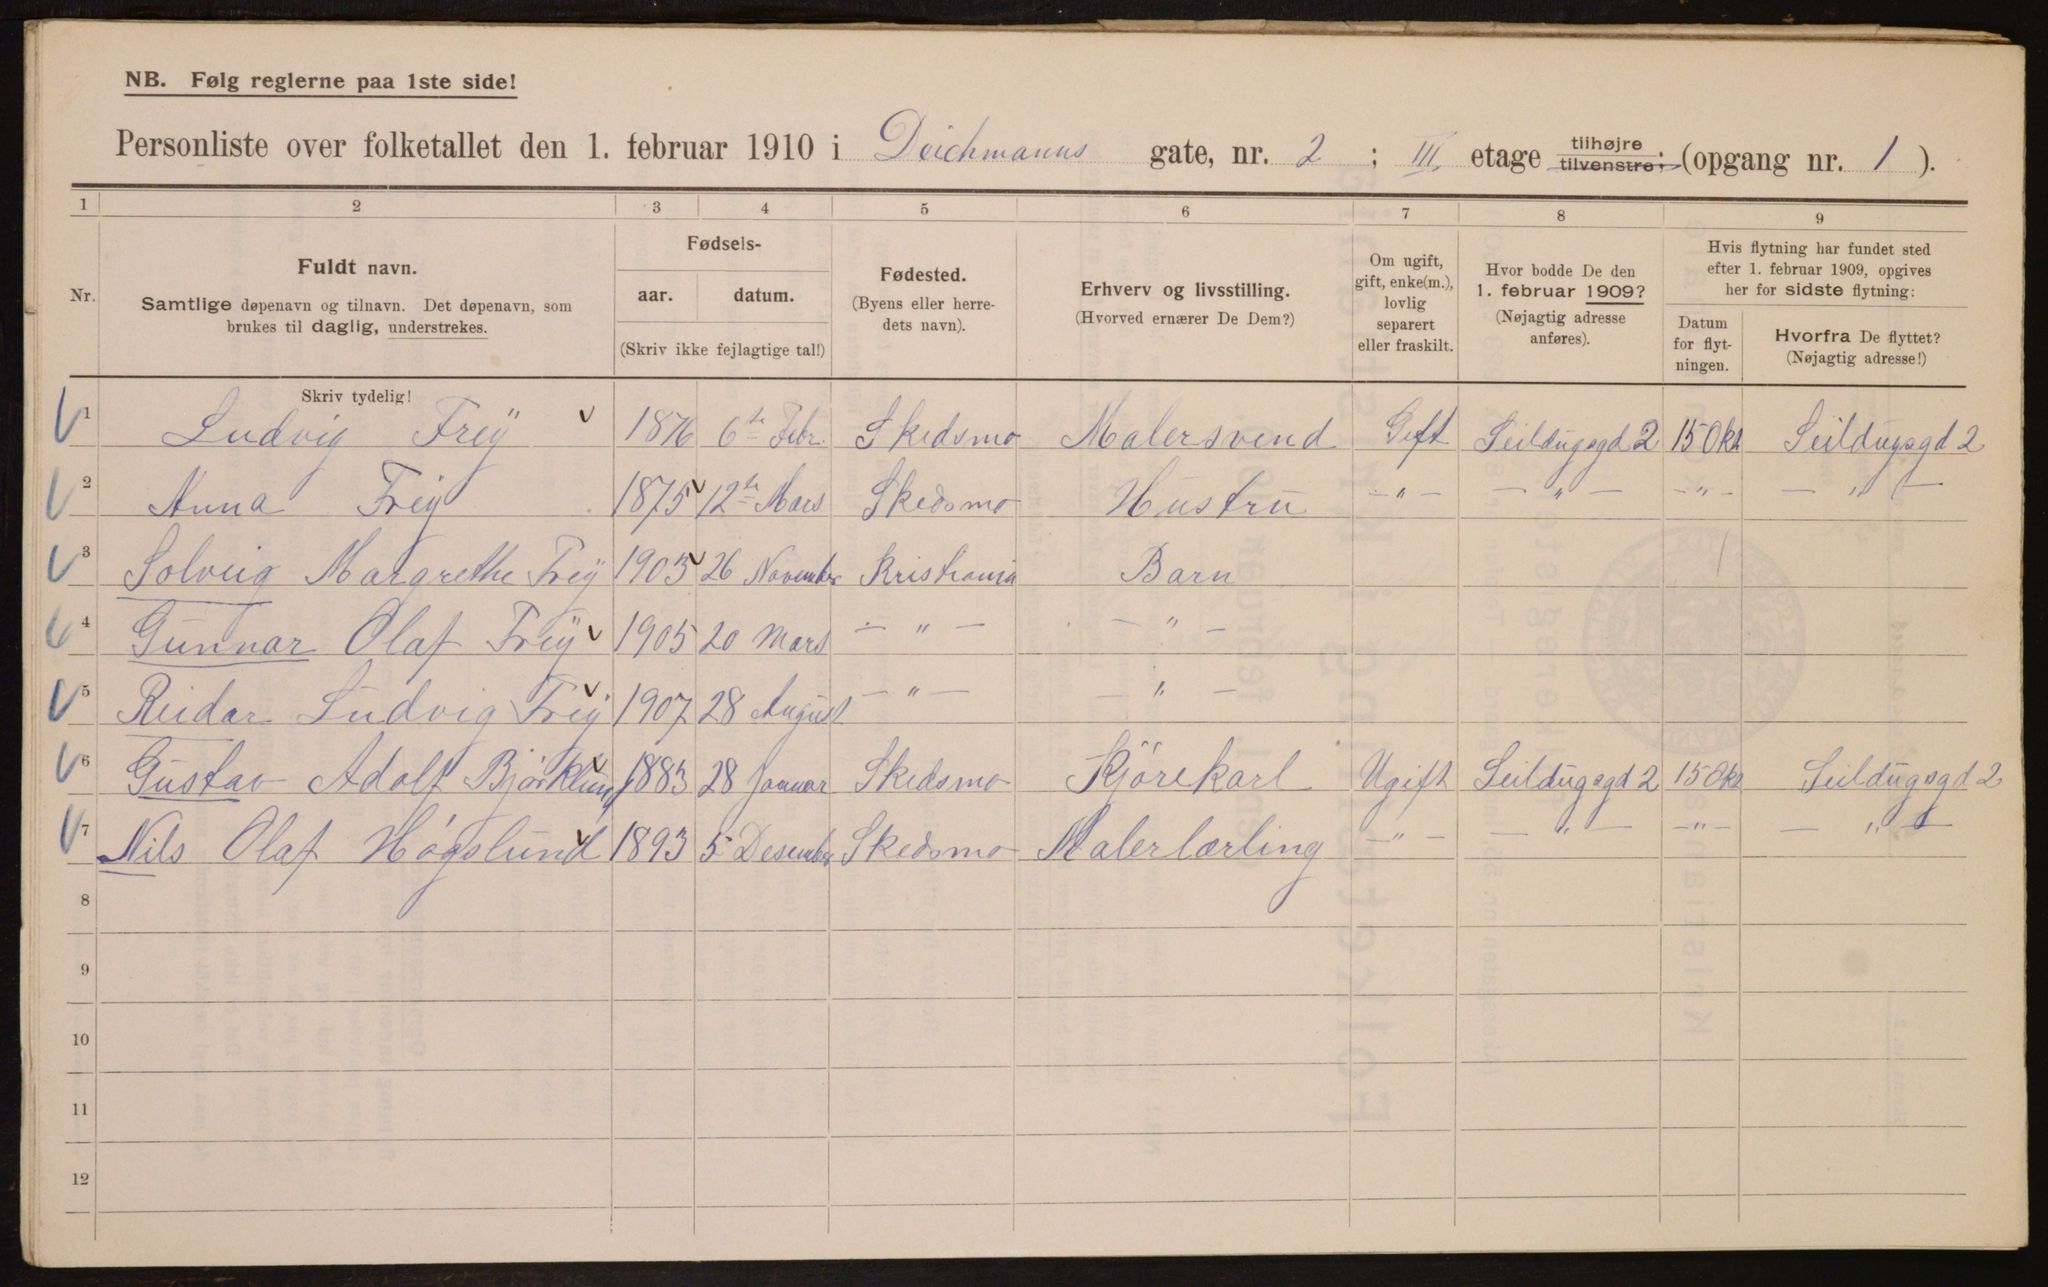 NB. Følg reglerne paa 1ste side!
Personliste over folketallet den 1. februar 1910 i Deichmanns gate, nr. 2 ; III etage tilhøjre tilvenstre; (opgang nr. 1 ).
1 2 3 4 5 6 7 8 9
Nr.
Fuldt navn.
Samtlige døpenavn og tilnavn. Det døpenavn, som
brukes til daglig, understrekes.
Fødsels-
aar. datum.
(Skriv ikke fejlagtige tal!)
Fødested.
(Byens eller herre-
dets navn).
Erhverv og livsstilling.
(Hvorved ernærer De Dem?)
Om ugift,
gift, enke(m.),
lovlig
separert
eller fraskilt.
Hvor bodde De den
1. februar 1909?
(Nøjagtig adresse
anføres).
Hvis flytning har fundet sted
efter 1. februar 1909, opgives
her for sidste flytning:
Datum
for flyt-
ningen.
Hvorfra De flyttet?
(Nøjagtig adresse!)
Skriv tydelig!
1 Ludvig Frey 1876 6te Febr. Skedsmo Malersvend Gift Seildugsgd 2 15 Okt Seildugsgd 2
2 Anna Frey 1875 12te Mars Skedsmo Hustru -"- -"- -"- -"-
3 Solveig Margrethe Frey 1903 26 November Kristiania Barn
4 Gunnar Olaf Frey 1905 20 Mars -"- -"-
5 Reidar Ludvig Frey 1907 28 August -"- -"-
6 Gustav Adolf Björklund 1883 28 Januar Skedsmo Kjörekarl Ugift Seildugsgd 2 15 Okt Seildugsgd 2
7 Nils Olaf Högslund 1893 5 Desember Skedsmo Malerlærling -"- -"- -"- -"-
8
9
10
11
12